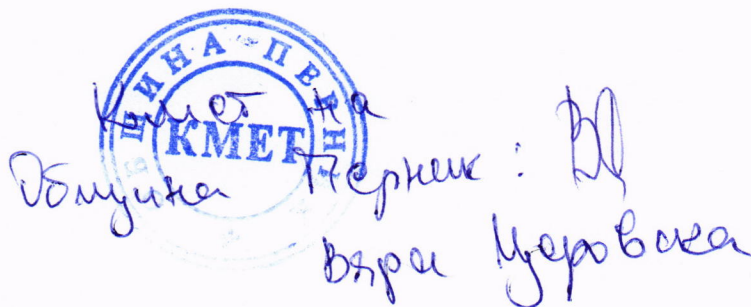 ОБЩИНА ПЕРНИК
КМЕТ
Кмет на
Община Перник:
Вяра Церовска